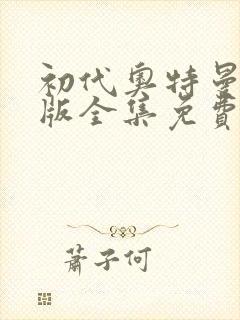 初代奥特曼
版全集免費
蕭子何